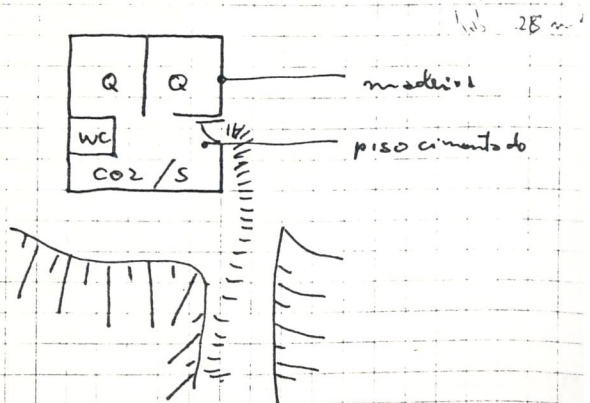 28 m²
Q Q
madeira
WC
A1
piso cimentado
COZ/S